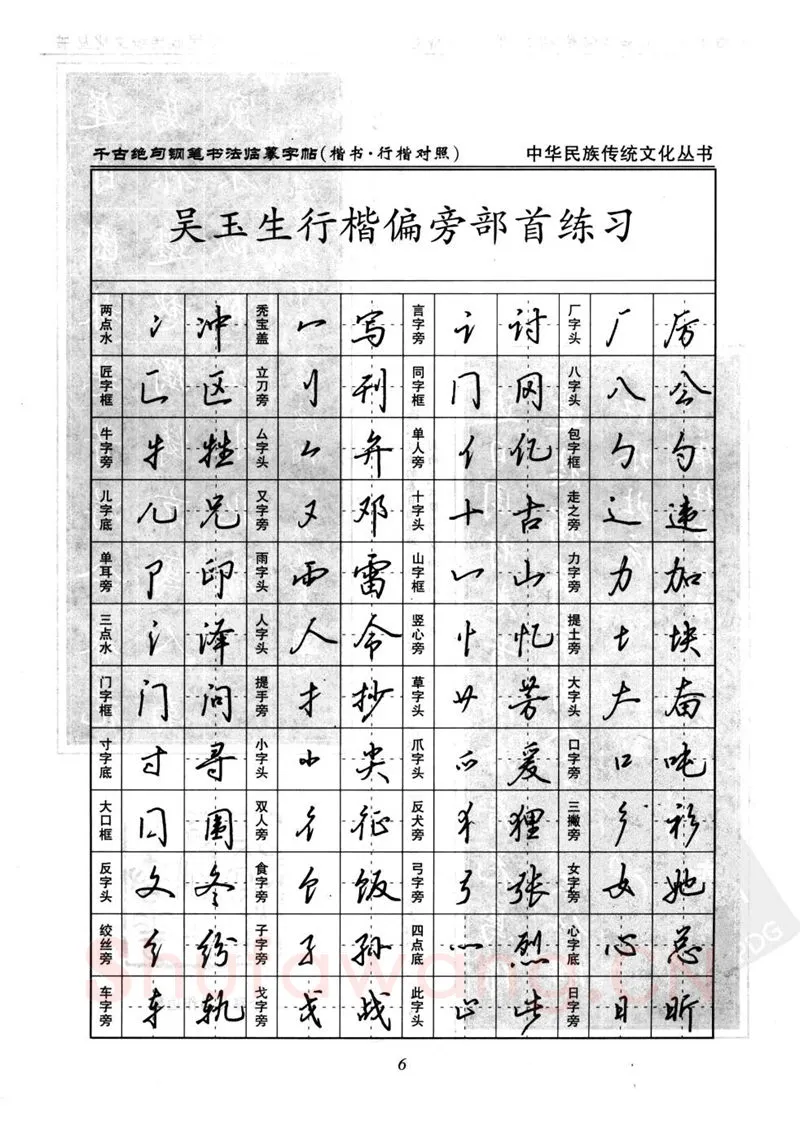 千古绝句钢笔书法临摹字帖(楷书·行楷对照) 中华民族传统文化丛书
吴玉生行楷偏旁部首练习
两点水 冫 冲 秃宝盖 冖 写 言字旁 讠 讨 厂字头 厂 厉
匠字框 匚 区 立刀旁 刂 刊 同字框 冂 冈 八字头 八 公
牛字旁 牜 牲 厶字头 厶 弁 单人旁 亻 亿 包字框 勹 勺
儿字底 儿 兄 又字旁 又 邓 十字头 十 古 走之旁 辶 违
单耳旁 卩 印 雨字头 雨 雷 山字框 山 力字旁 力 加
三点水 氵 泽 人字头 人 令 竖心旁 忄 忆 提土旁 土 块
门字框 门 问 提手旁 扌 抄 草字头 艹 芳 大字头 大 奋
寸字底 寸 寻 小字头 小 尖 爪字头 爫 爱 口字旁 口 吨
大口框 囗 围 双人旁 彳 征 反犬旁 犭 狸 三撇旁 彡 衫
反字头 夂 冬 食字旁 饣 饭 弓字旁 弓 张 女字旁 女 她
绞丝旁 纟 纷 子字旁 子 孙 四点底 灬 烈 心字底 心 总
车字旁 车 轨 戈字旁 戈 战 此字头 止 些 日字旁 日 昕
Shufawang.CN
6